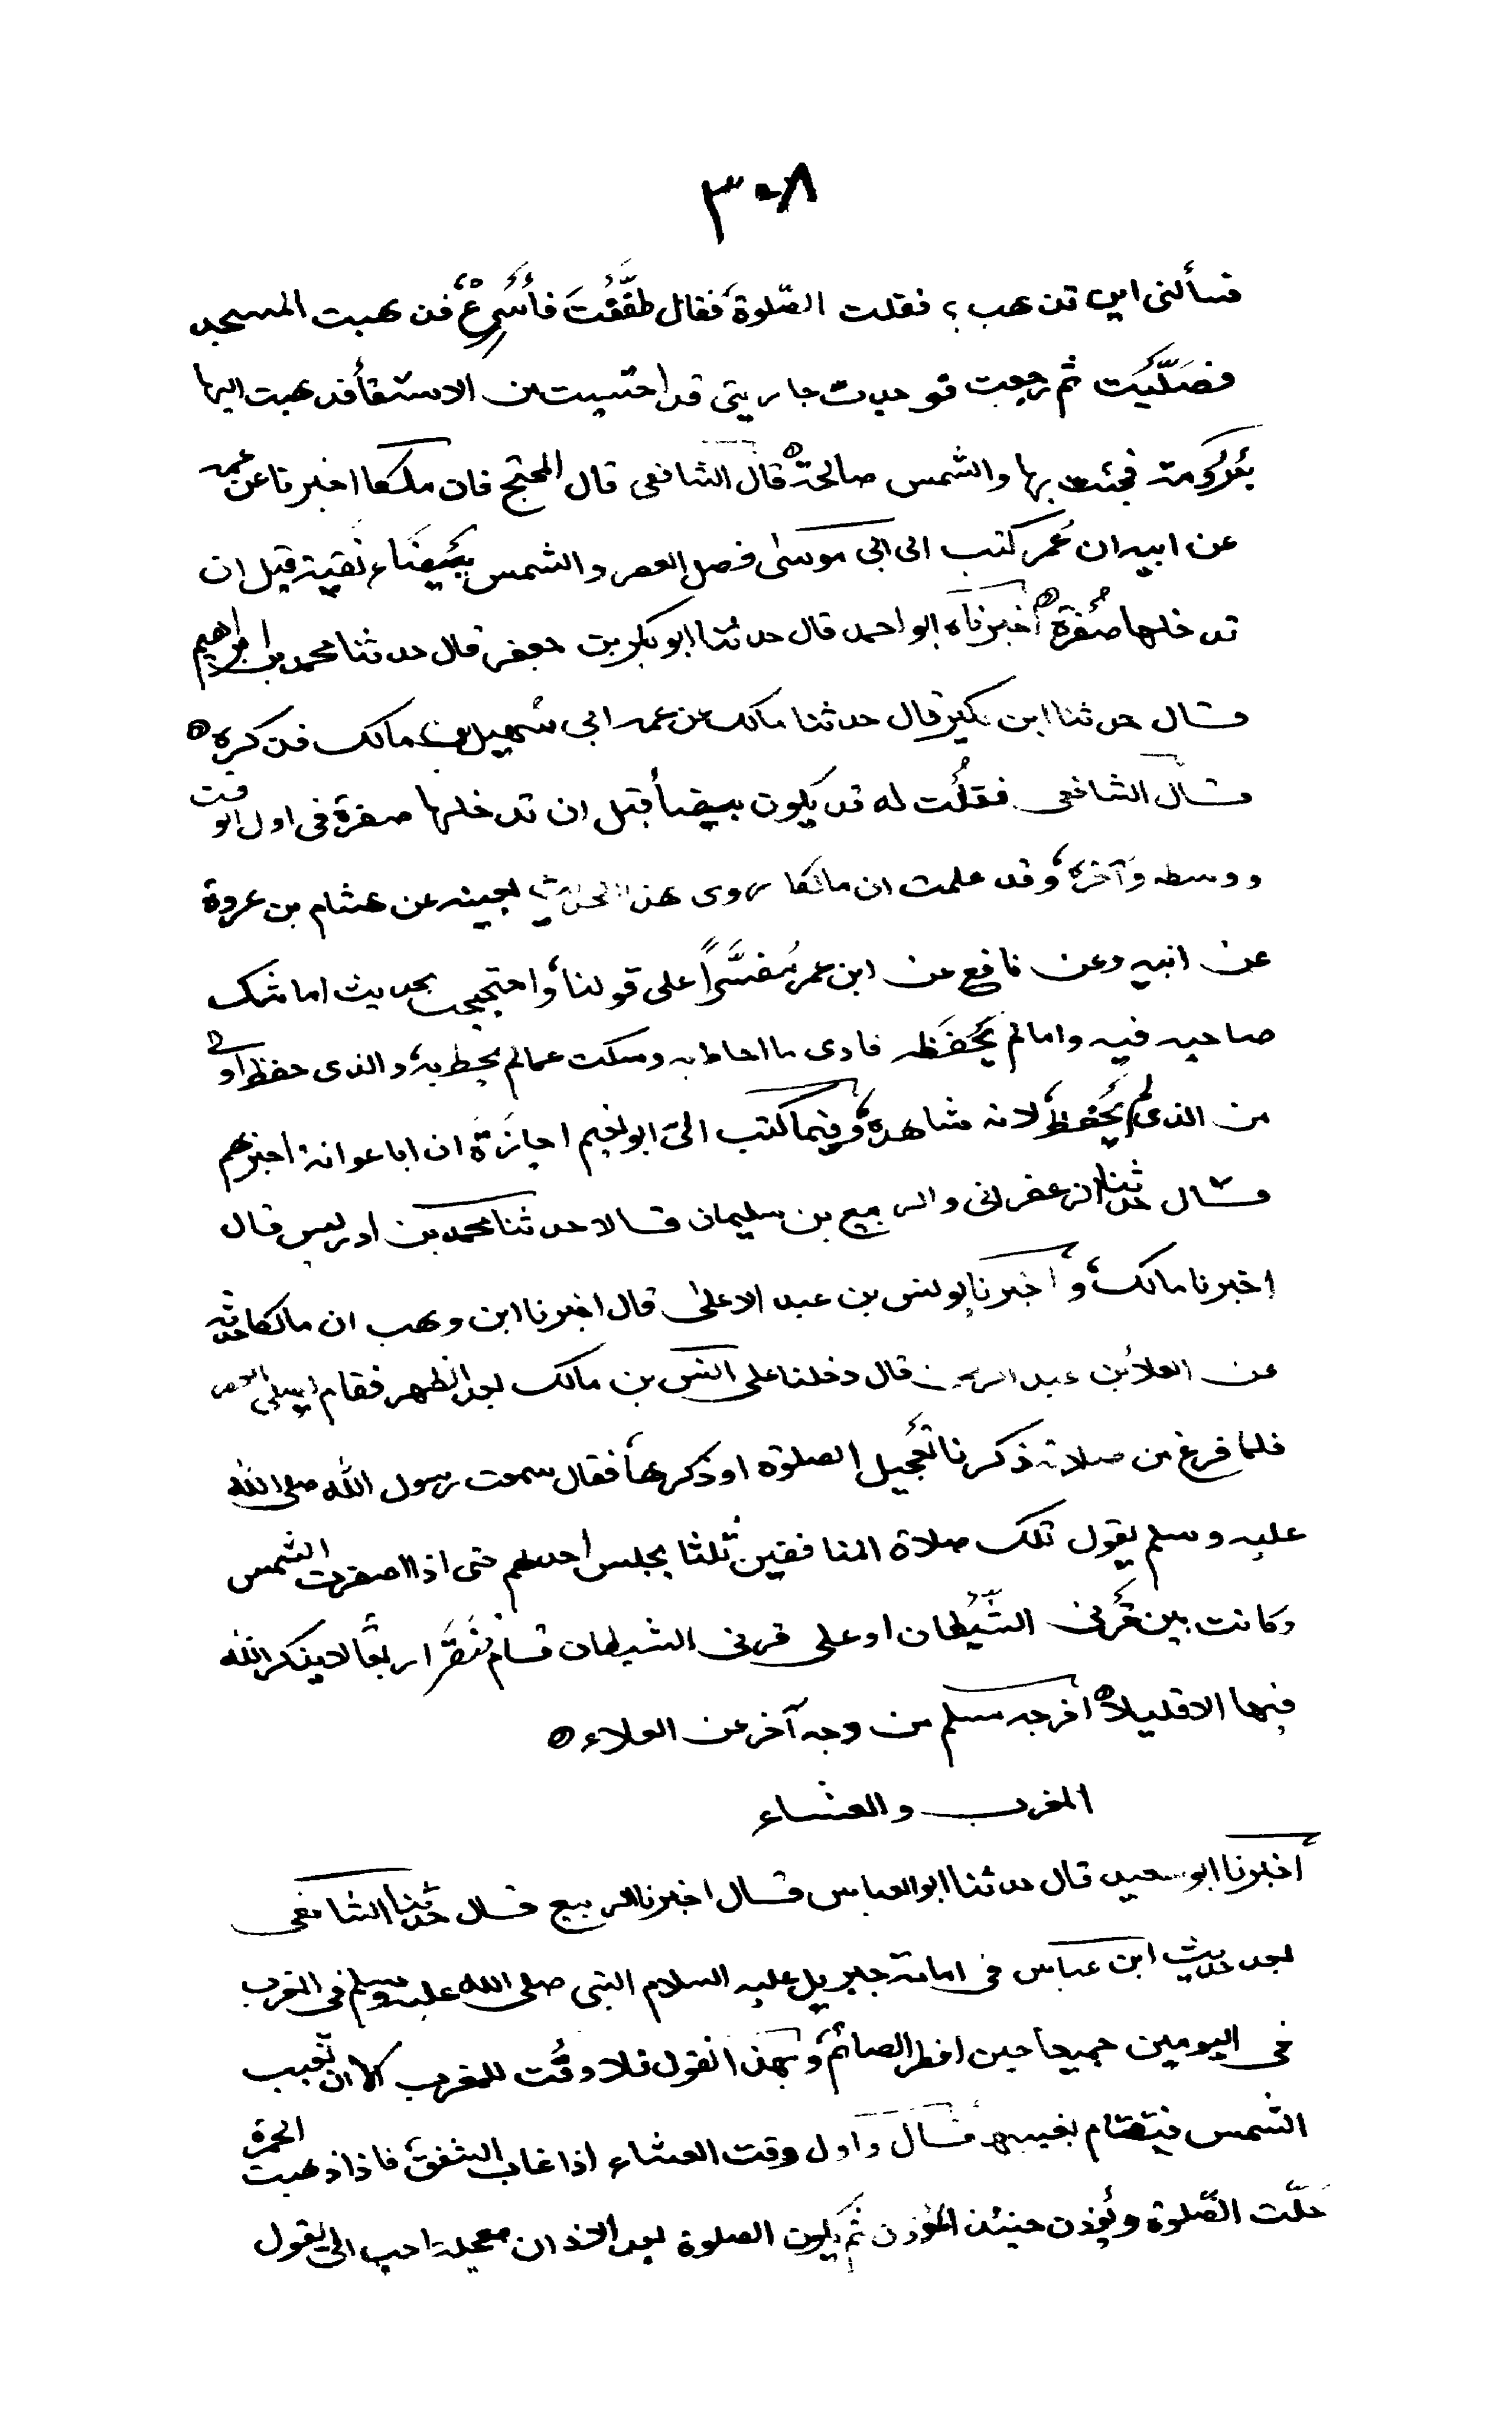 ٣٠٨
فسألني اين تذهب ؟ فقلت الصّلوة، فقال طفّفْتَ فأسْرِعْ، فذهبت المسجد
فصَلّيْت ثم رجعت فوجدت جاريتي قد احتبست من الاستقاء فذهبت اليها
بئرَ رُومة فجئت بها والشمس صالحة ه قال الشافعي قال المحتج فان ملكا اخبرنا عن عمه
عن ابيه ان عُمر كتب الى ابي موسى فصل العصر والشمس بَيْضَاء نقية قبل ان
تدخلها صُفْرة ه أخبرناه ابو احمد قال حدثنا ابو بكر بن جعفر قال حدثنا محمد بن ابراهيم
قال حدثنا ابن بكير قال حدثنا مالك عن عمه ابي سُهيل بن مالك فذكره ه
قال الشافعي فقلْت له قد يكون بيضاً قبل ان تدخلها صفرة في اول الوقت
ووسطه وآخره، وقد علمت ان مالكا روى هذا الحديث بعينه عن هشام بن عروة
عن ابيه وعن نافع عن ابن عمر مُفسَّراً على قولنا، واحتججت بحديث اما شك
صاحبه فيه واما لم يَحْفَظه فادى ما احاط به وسكت عما لم يحط به، والذي حفظ اولى
من الذي لم يَحْفظ، لانه شاهده، وفيما كتب اليّ ابو نعيم اجازَةً ان ابا عوانة اخبرهم
قال حدثنا الزعفراني والربيع بن سليمان قالا حدثنا محمد بن ادريس قال
اخبرنا مالك، وأخبرنا يونس بن عبد الاعلى قال اخبرنا ابن وهب ان مالكا حدثه
عن العلاء بن عبد الرحمن قال دخلنا على انس بن مالك بعد الظهر فقام يصلي العصر
فلما فرغ من صلاته ذكرنا تعْجيل الصلوة او ذكرها، فقال سمعت رسول الله صلى الله
عليه وسلم يقول تلك صلاة المنافقين ثلثا يجلس احدهم حتى اذا اصفرت الشمس
وكانت بين قَرْني الشّيْطان او على قرني الشيطان قام فنَقَرَ اربعًا لا يذكر الله
فيها الا قليلاً ه اخرجه مسلم من وجه آخر عن العلاء ه
المغرب والعشاء
أخبرنا ابو سعيد قال حدثنا ابو العباس قال اخبرنا الربيع قال حدثنا الشافعي
بعد حديث ابن عباس في امامة جبريل عليه السلام النبي صلى الله عليه وسلم في المغرب
في اليومين جميعا حين افطر الصائم، وبهذا نقول فلا وقْت للمغرب الا ان تغيب
الشمس فيقام بغيبها قال واول وقت العشاء اذا غاب الشفق، فاذا ذهبت الحمرة
حَلّت الصّلوة ويُؤذن حينئذ المؤذن ثم يكون الصلوة بعد الاذان معجلة احب الي يقول